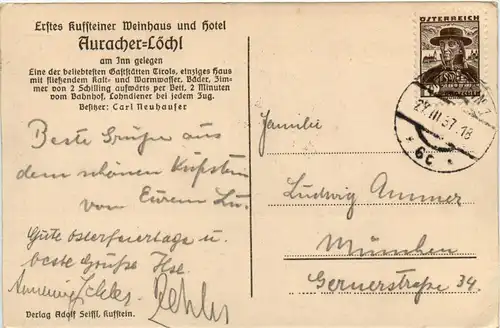 Erstes Kufsteiner Weinhaus und Hotel
Auracher-Löchl
am Inn gelegen
Eine der beliebtesten Gaststätten Tirols, einziges Haus
mit fließendem Kalt- und Warmwasser. Bäder, Zim-
mer von 2 Schilling aufwärts per Bett. 2 Minuten
vom Bahnhof. Lohndiener bei jedem Zug.
Besitzer: Carl Neuhauser
Beste Grüße aus
dem schönen Kufstein
von Eurem Lu.
Gute Osterfeiertage u.
beste Grüße Ilse
Verlag Adolf Seiffl, Kufstein.
ÖSTERREICH
27.III.37.18
6c
Familie
Ludwig Ammer
München
Gernerstraße 34.